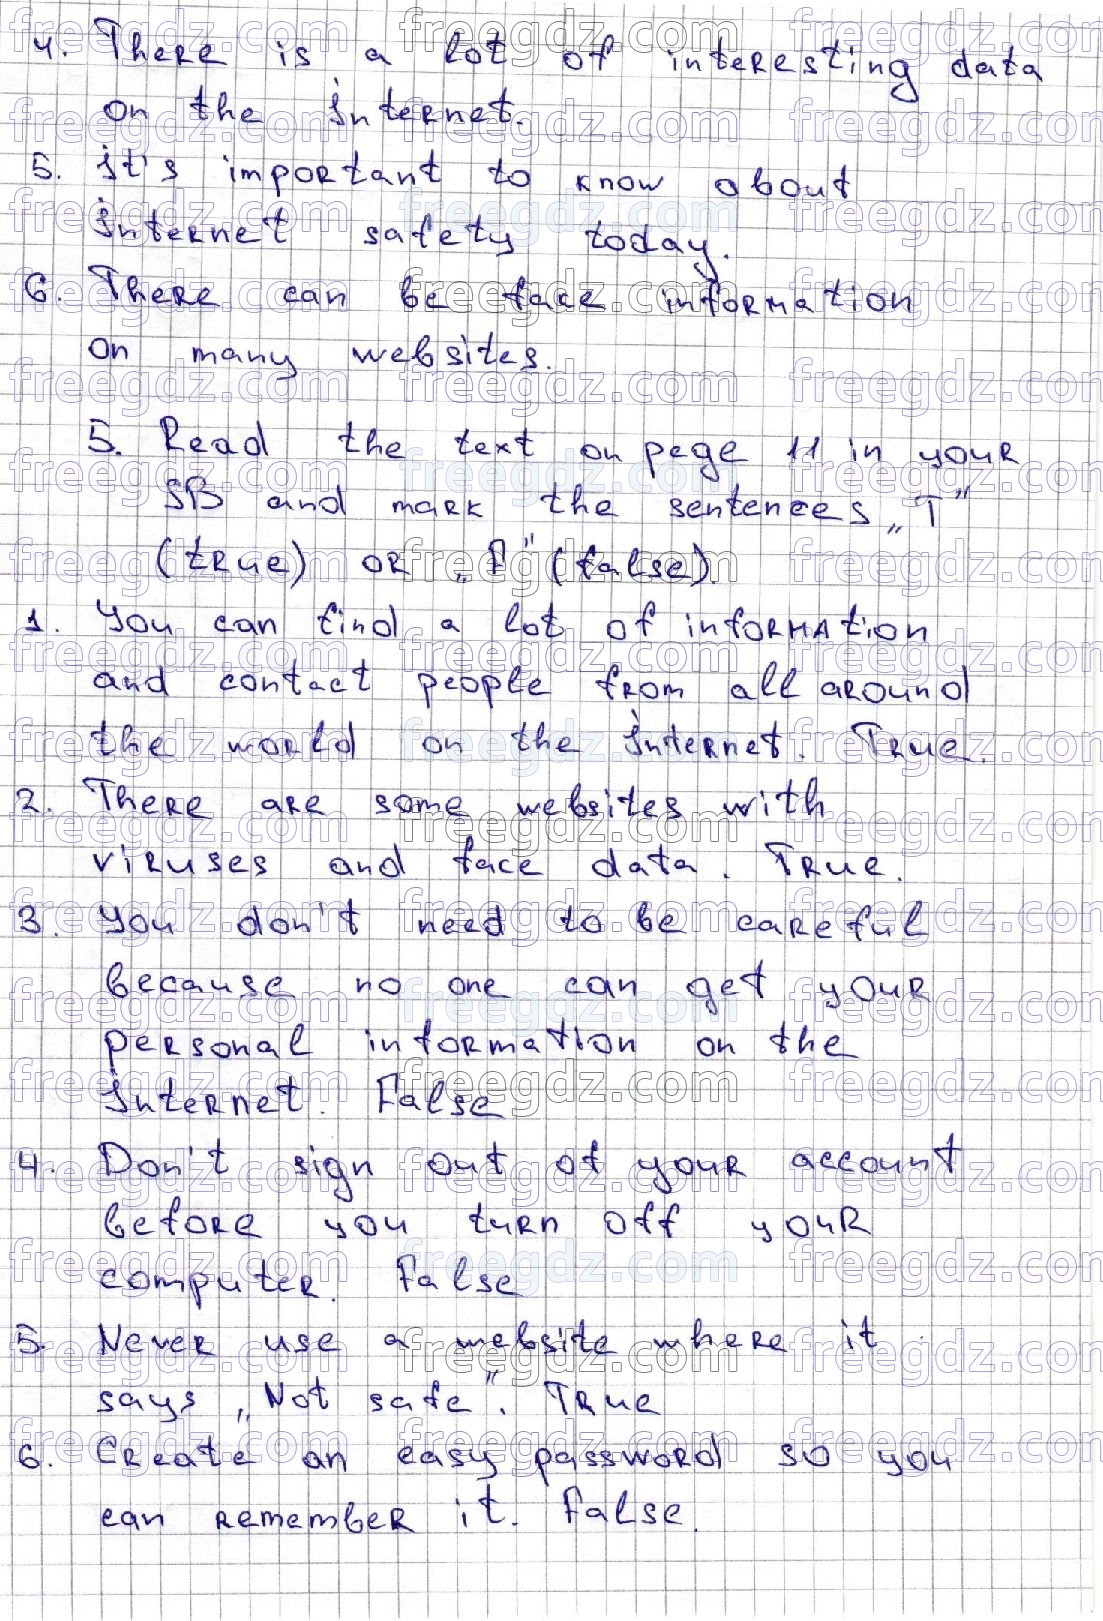 4. There is a lot of interesting data
on the internet.
5. it's important to know about
internet safety today.
6. There can be fake information
on many websites.
5. Read the text on page 11 in your
SB and mark the sentences „T"
(true) or „F" (false).
1. You can find a lot of information
and contact people from all around
the world on the internet. True.
2. There are some websites with
viruses and face data. True.
3. You don't need to be careful
because no one can get your
personal information on the
internet. False
4. Don't sign out of your account
before you turn off your
computer. False
5. Never use a website where it
says „Not safe". True
6. Create an easy password so you
can remember it. False.